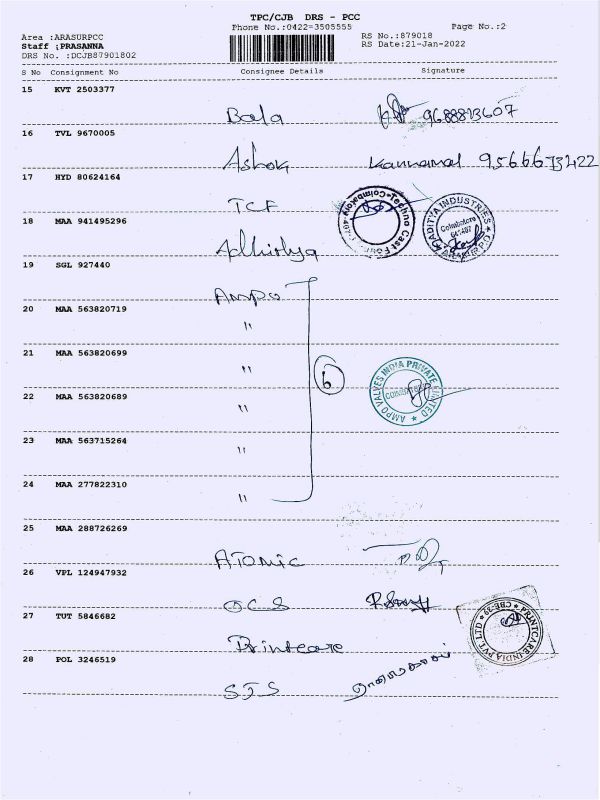 TPC/CJB DRS - PCC
Phone No.:0422-3505555 Page No.:2
Area :ARASURPCC RS No.:879018
Staff :PRASANNA RS Date:21-Jan-2022
DRS No. :DCJB87901802
S No Consignment No Consignee Details Signature
15 KVT 2503377
Bala 9688813607
16 TVL 9670005
Ashok Kannamal 9566613422
17 HYD 80624164
TCF
18 MAA 941495296
Adhithya
ADITYA INDUSTRIES
Coimbatore
641407
19 SGL 927440
AMPO
20 MAA 563820719
"
21 MAA 563820699
"
6
22 MAA 563820689
"
AMPO VALVES INDIA PRIVATE LIMITED
23 MAA 563715264
"
24 MAA 277822310
"
25 MAA 288726269
ATOMIC
26 VPL 124947932
OCS
27 TUT 5846682
Printcare
PRINTCARE INDIA PVT. LTD CBE-29
28 POL 3246519
SJS